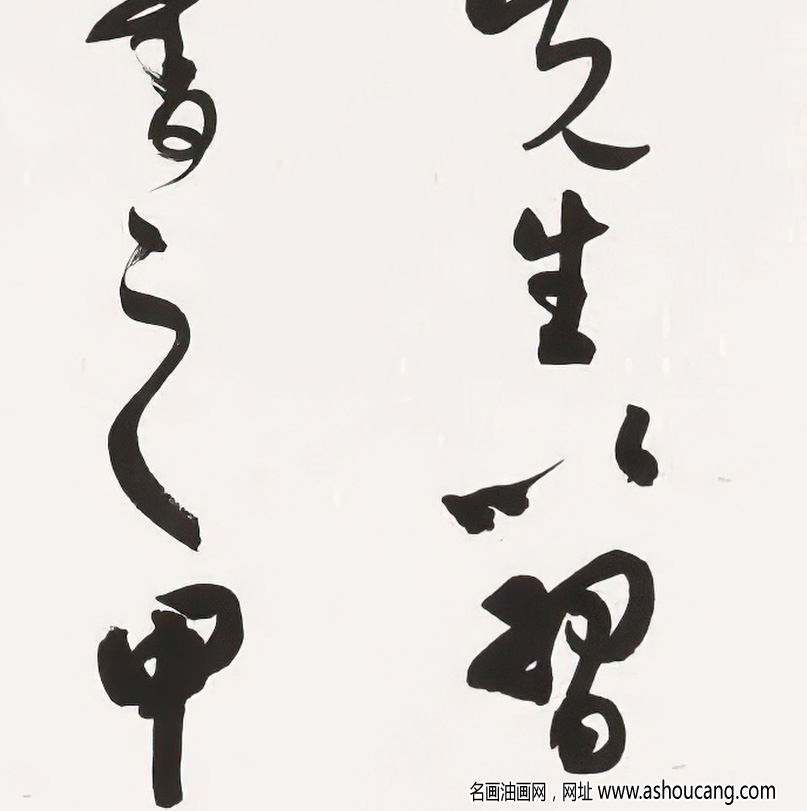 先生以習
書之甲
名画油画网，网址 www.ashoucang.com